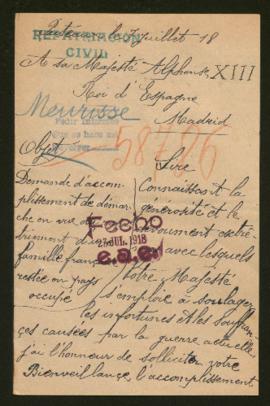 le Juillet 18
REPATRIACION
CIVIL
A Sa Majesté Alphonse XIII
Roi d'Espagne
Madrid
Meurisse
Pedir
que se haga
58786
Objet
Sire
Demande d'accom-
plissement de démar-
che en vue de
famille française
restée en pays
occupé
Connaissant la
générosité et le
dévouement extrê-
avec lesquels
Votre Majesté
s'emploie à soulager
Fecho
27 JUL. 1918
les infortunes et les souffran-
ces causées par la guerre actuelle,
j'ai l'honneur de solliciter votre
Bienveillance, l'accomplissement